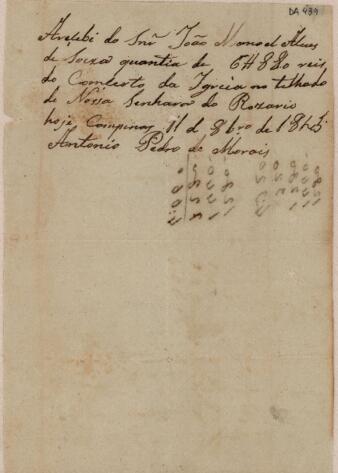 DA 439
Arecebi do Snr João Manoel Alves
de Souza quantia de 6#880 reis
do Comserto da Igreia no telhado
de Nossa Senhara do Rozario
hoje Campinas 11 d 8bro de
Antonio Pedro de Morais